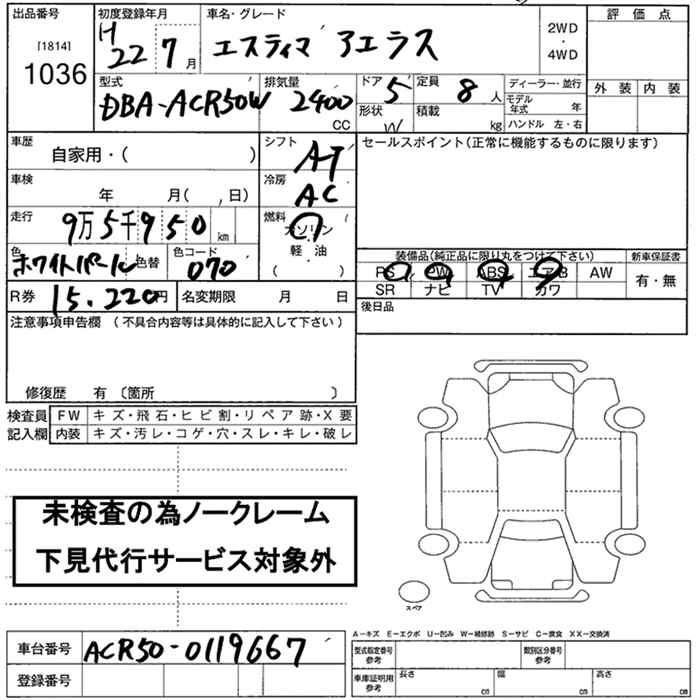 出品番号 初度登録年月 車名・グレード 評価点
[1814] H 22 7月 エスティマ アエラス 2WD・4WD
1036
型式 排気量 ドア 定員 ディーラー・並行 外装 内装
DBA-ACR50W 2400 CC 5 8人 モデル年式 年
形状 W 積載 kg ハンドル 左・右
車歴 シフト セールスポイント(正常に機能するものに限ります)
自家用・( ) AT
車検 冷房
年 月( , 日) AC
走行 燃料
9万5千950km ガソリン
色 色替 色コード 軽油
ホワイトパール 070 ( )
装備品(純正品に限り丸をつけて下さい) 新車保証書
PS PW ABS エアB AW 有・無
SR ナビ TV カワ
R券 15,220円 名変期限 月 日
後日品
注意事項申告欄 (不具合内容等は具体的に記入して下さい)
修復歴 有 〔箇所 〕
検査員 FW キズ・飛石・ヒビ割・リペア跡・X要
記入欄 内装 キズ・汚レ・コゲ・穴・スレ・キレ・破レ
未検査の為ノークレーム
下見代行サービス対象外
スペア
A－キズ E－エクボ U－凹み W－補修跡 S－サビ C－腐食 XX－交換済
車台番号 ACR50-0119667
登録番号
型式指定番号 参考 類別区分番号 参考
車庫証明用 参考 長さ cm 幅 cm 高さ cm